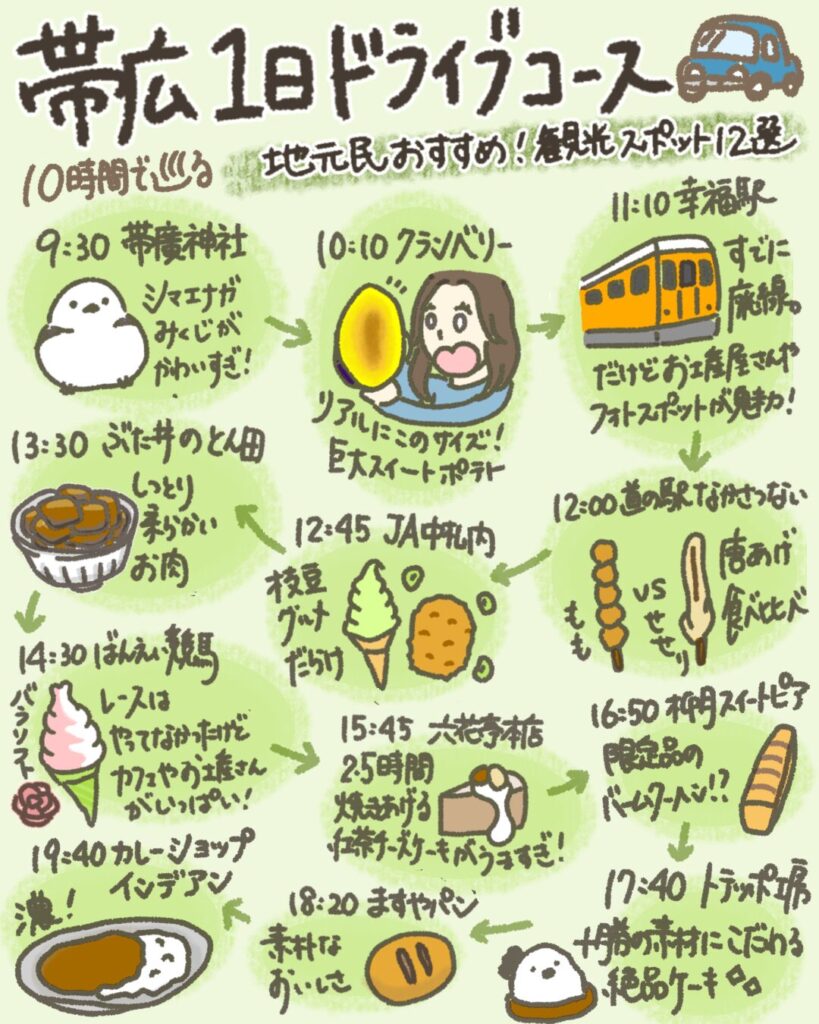 帯広1日ドライブコース
地元民おすすめ!観光スポット12選
10時間で巡る
9:30 帯廣神社
シマエナガ
みくじが
かわいすぎ!
10:10 クランベリー
リアルにこのサイズ!
巨大スイートポテト
11:10 幸福駅
すでに
廃線。
だけどお土産屋さんや
フォトスポットが魅力!
12:00 道の駅なかさつない
唐あげ
食べ比べ
もも
VS
せせり
12:45 JA中札内
枝豆
グルメ
だらけ
13:30 ぶた丼のとん田
しっとり
柔らかい
お肉
14:30 ばんえい競馬
バラソフト
レースは
やってなかったけど
カフェやお土産さん
がいっぱい!
15:45 六花亭本店
2.5時間
焼きあげる
紅茶チーズケーキがうますぎ!
16:50 柳月スイートピア
限定品の
バームクーヘン!?
17:40 トテッポ工房
十勝の素材にこだわる
絶品ケーキ
18:20 ますやパン
素朴な
おいしさ
19:40 カレーショップ
インデアン
濃!